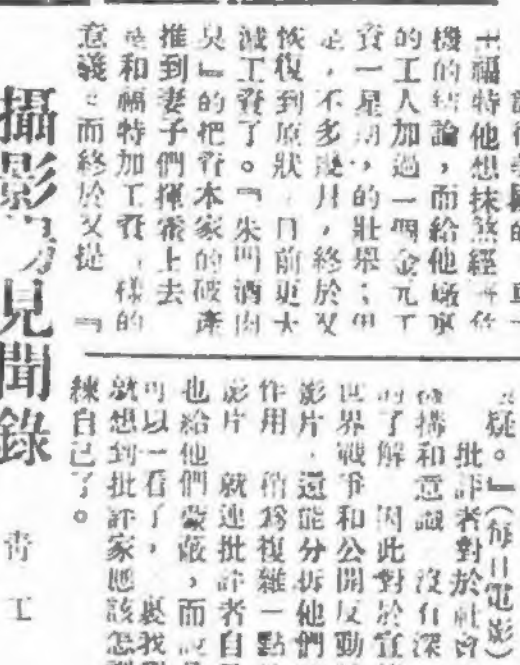 王福特他想抹煞經濟危
機的結論,而給他廠裏
的工人加過一個金元工
資一星期,的壯舉;但
是,不多幾月,終於又
恢復到原狀,目前更大
減工資了。『朱門酒肉
臭』的把資本家的破產
推到妻子們揮霍上去
是和福特加工資 樣的
意義。而終於又提 『
疑。』(每日電影)
批評者對於社會
和意識 沒有深
的了解 因此對於宣
世界戰爭和公開反動
影片,還能分拆他們
作用 稍為複雜一點
影片 就連批評者自
也給他們蒙蔽,而說
可以一看了, 裏我
就想到批評家應該怎
練自己了。
攝影場見聞錄
青工